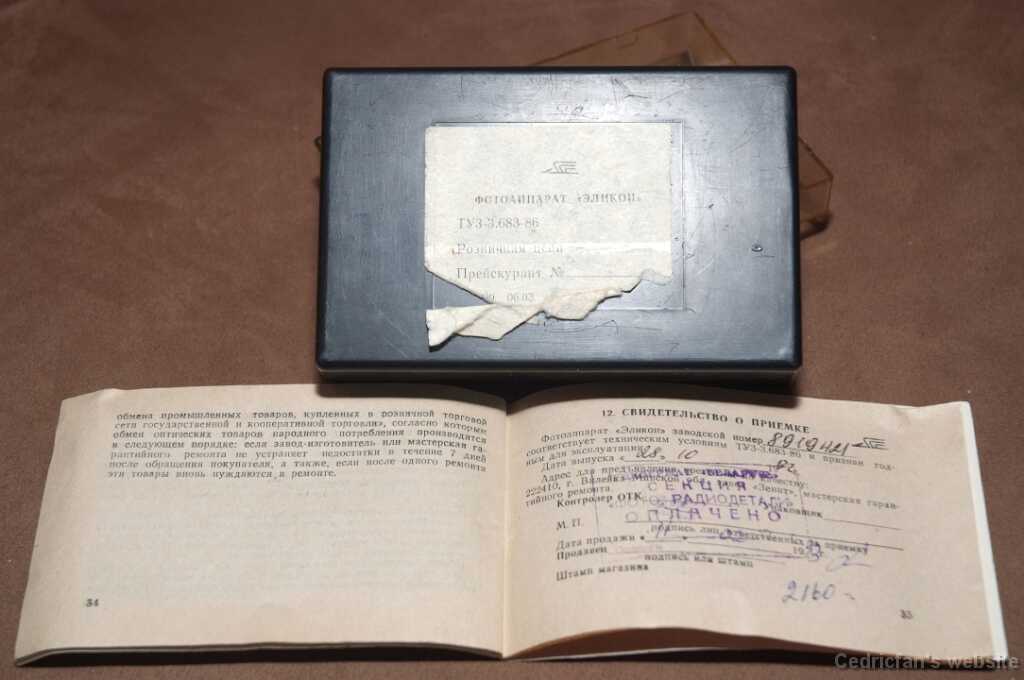 ФОТОАППАРАТ «ЭЛИКОН»
ТУ3-3.683-86
Розничная цена
Прейскурант №
06.03
обмена промышленных товаров, купленных в розничной торговой
сети государственной и кооперативной торговли», согласно которым
обмен оптических товаров народного потребления производится
в следующем порядке: если завод-изготовитель или мастерская га-
рантийного ремонта не устраняет недостатки в течение 7 дней
после обращения покупателя, а также, если после одного ремонта
эти товары вновь нуждаются в ремонте.
34
12. СВИДЕТЕЛЬСТВО О ПРИЕМКЕ
Фотоаппарат «Эликон» заводской номер
соответствует техническим условиям ТУ3-3.683-86 и признан год-
ным для эксплуатации.
Дата выпуска «28 10
Адрес для предъявления
222410, г. Вилейка Минской обл., завод «Зенит», мастерская гаран-
тийного ремонта.
Контролер ОТК Упаковщик
СЕКЦИЯ
РАДИОДЕТАЛИ
ОПЛАЧЕНО
М. П.
подпись лиц, ответственных за приемку
Дата продажи « 11 » 19
Продавец
подпись или штамп
Штамп магазина
2160
35
Cedricfan's website